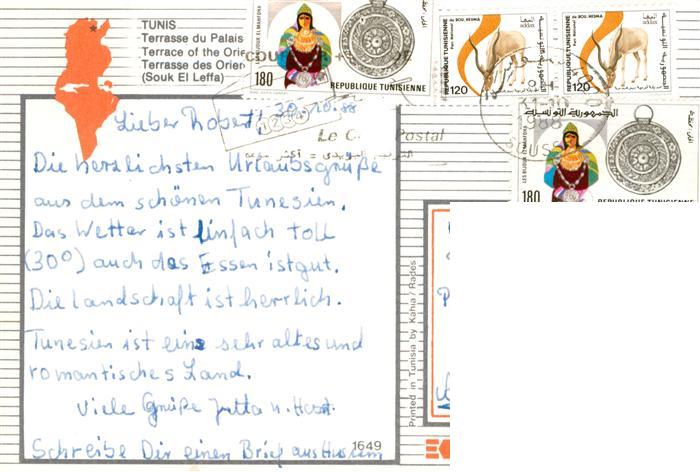 TUNIS
Terrasse du Palais
Terrace of the Orie
Terrasse des Orien
(Souk El Leffa)
180
REPUBLIQUE TUNISIENNE
REPUBLIQUE TUNISIENNE
Parc National de BOU. HEDMA
addax
120
REPUBLIQUE TUNISIENNE
Parc National de BOU. HEDMA
addax
120
الجمهورية التونسية
LES BIJOUX EL MAHFDHA
180
REPUBLIQUE TUNISIENNE
Le C Postal
1988
SOUSS
30.10.88
Lieber Robert!
Die herzlichsten Urlaubsgrüße
aus dem schönen Tunesien.
Das Wetter ist einfach toll
(30°) auch das Essen ist gut.
Die Landschaft ist herrlich.
Tunesien ist ein sehr altes und
romantisches Land.
Viele Grüße Jutta u. Horst.
Schreibe Dir einen Brief aus Husum
1649
Printed in Tunisia by Kahia / Rades